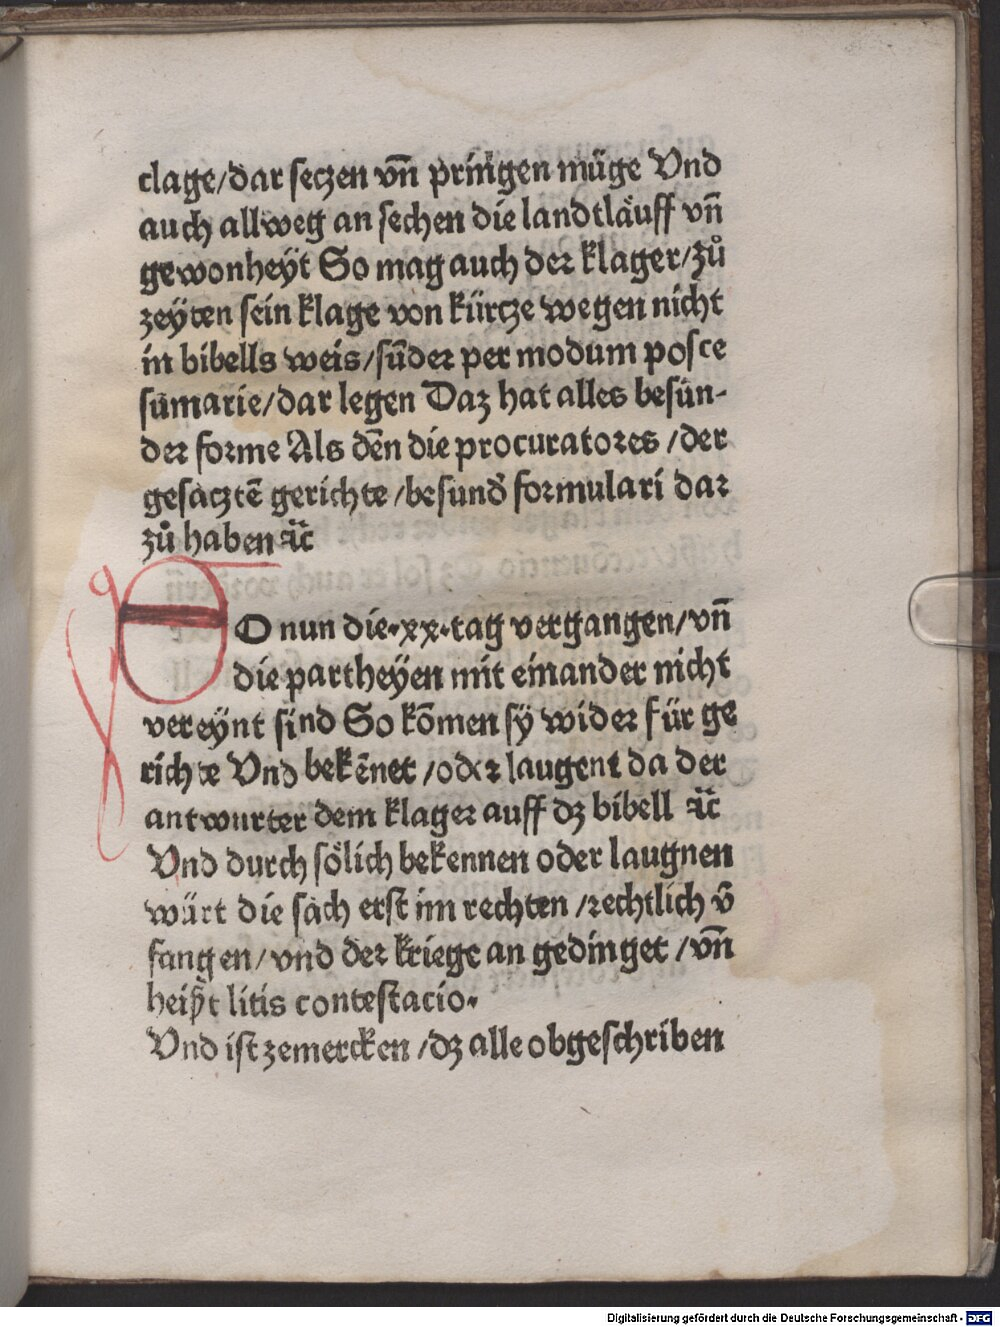 clage/dar seczen vn̄ pringen müge Vnd
auch allweg an sechen die landtläuff vn̄
gewonheÿt So mag auch der klager/zů
zeÿten sein klage von kürcze wegen nicht
in bibells weis/sūder per modum posce
sūmarie/dar legen Daz hat alles besūn-
der forme Als dēn die procuratores /der
gesacztē gerichte /besund̓ formulari dar
zů haben ꝛc̄
O nun die·xx·tag vergangen/vn̄
die partheÿen mit einander nicht
vereÿnt sind So kōmen sÿ wider für ge
richte Vnd bekēnet /oder laugent da der
antwurter dem klager auff dz bibell ꝛc̄
Vnd durch sölich bekennen oder laugnen
würt die sach erst im rechten /rechtlich v̄
fangen/vnd der kriege an gedinget /vn̄
heiſſt litis contestacio·
Vnd ist zemercken /dz alle obgeschriben
Digitalisierung gefördert durch die Deutsche Forschungsgemeinschaft - DFG